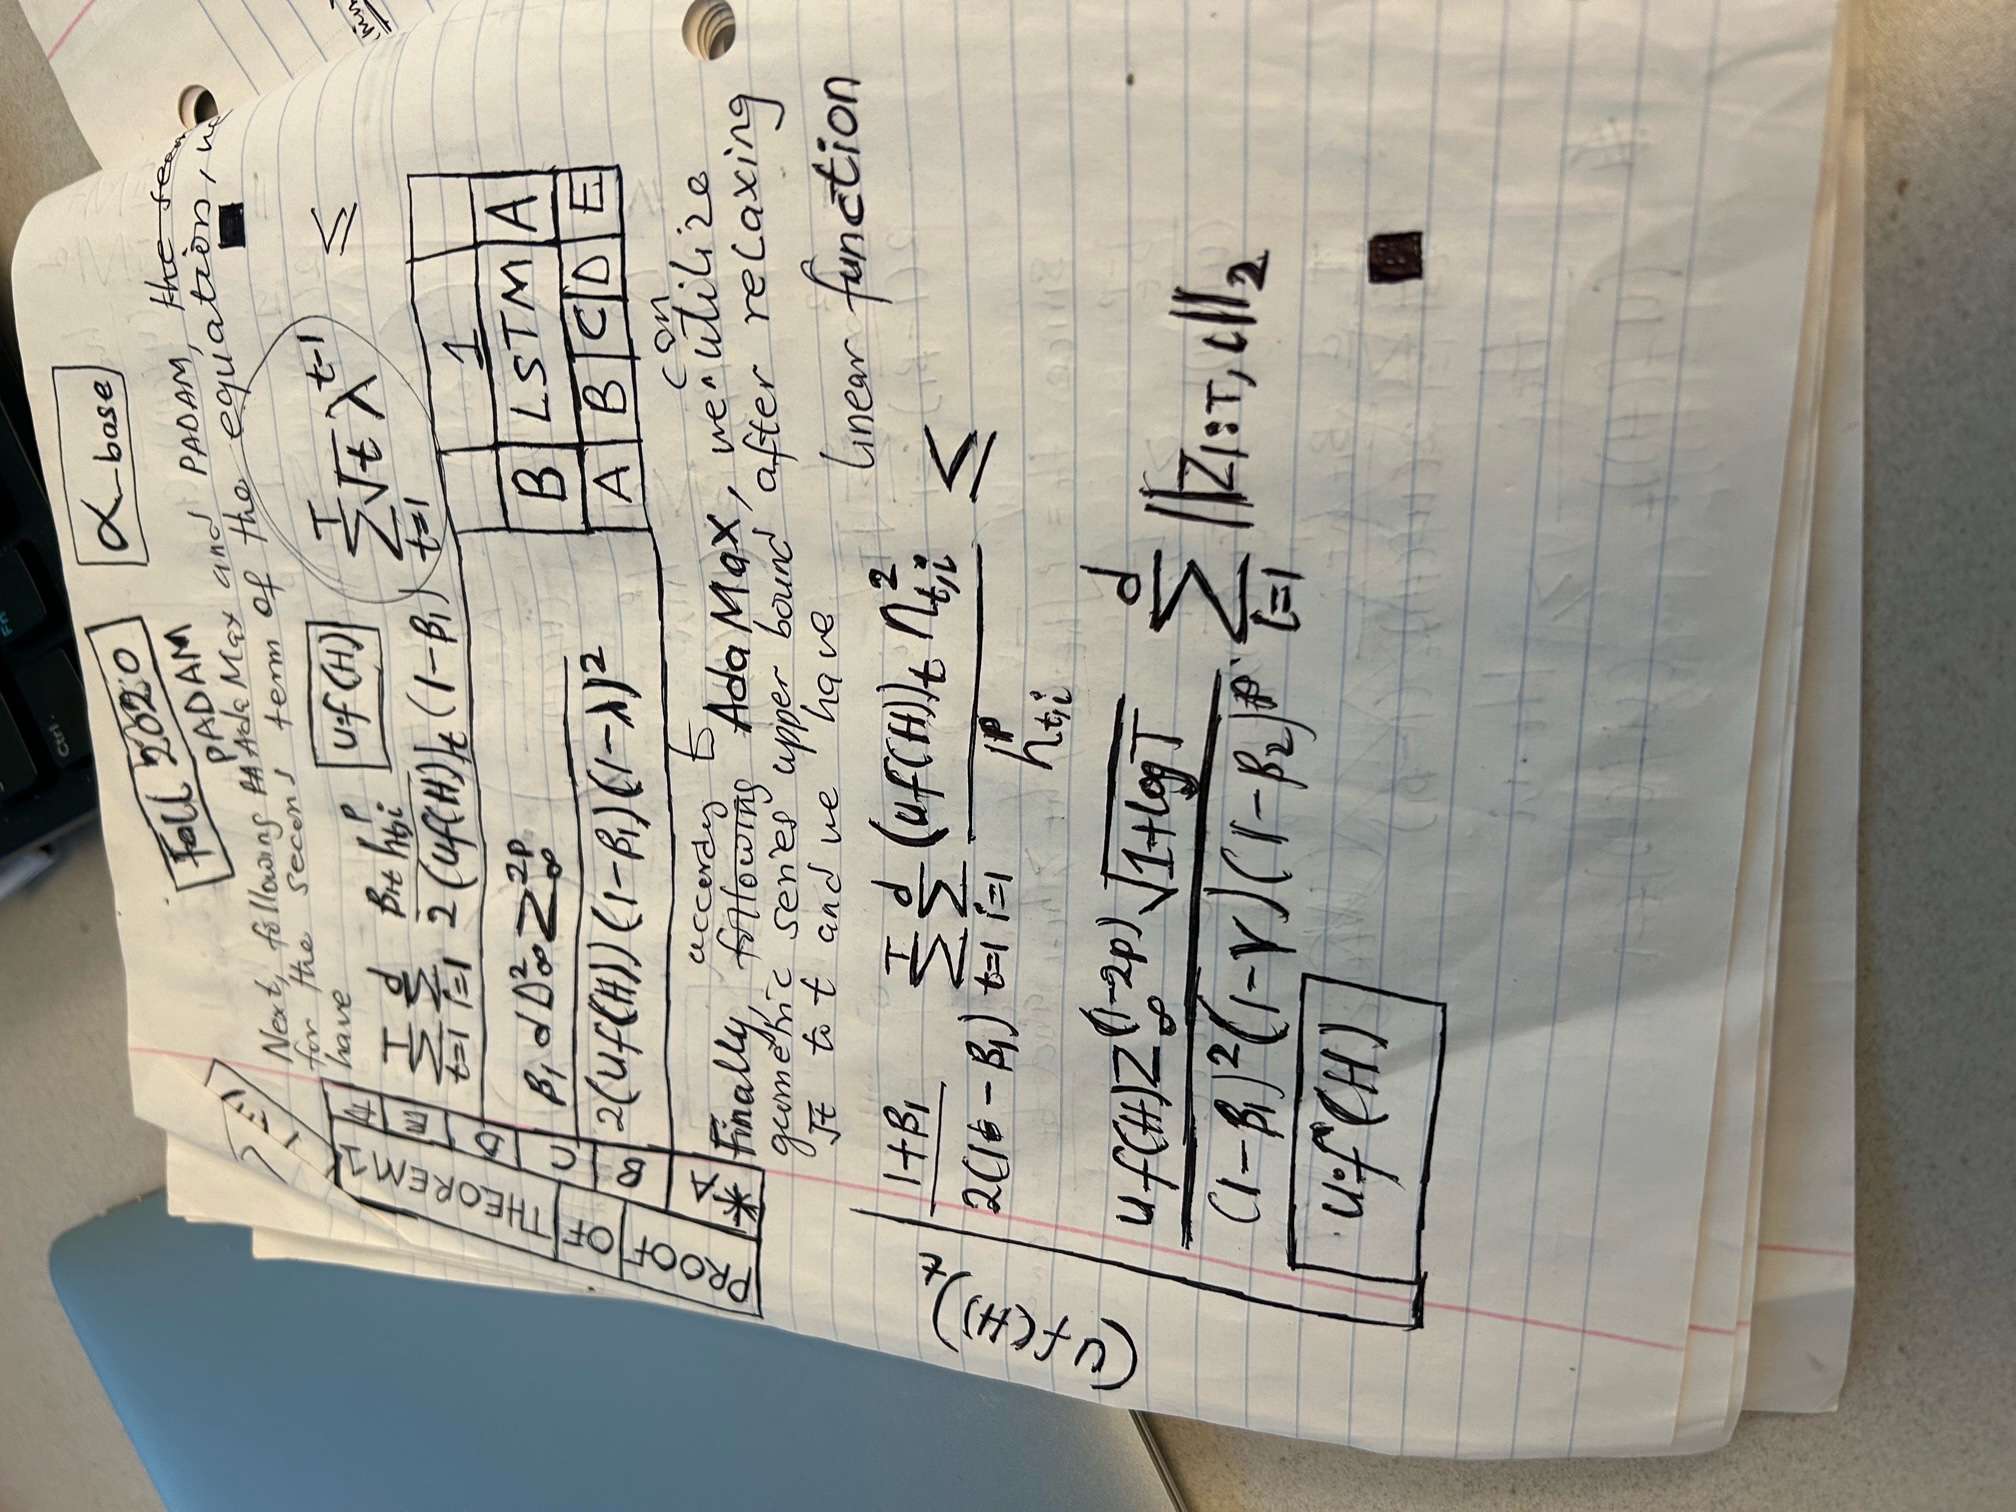 Ctrl
Fn
Fall 2020
α_base
PADAM
Next, following AdaMax and PADAM, the
for the second term of the equation, we
have
u·f(H)
∑_{t=1}^{T} ∑_{i=1}^{d} β₁t h_{t,i}^p / 2(uf(H))_t (1-β₁) ∑_{t=1}^{T} √t λ^{t-1} ≤
β₁ d D_∞^2 Z_∞^{2p} / 2(uf(H))(1-β₁)(1-λ)²
1
B LSTM A
A B C D E
PROOF OF THEOREM 1
* A B C D E F
Finally, following according to AdaMax, we can utilize
geometric series upper bound after relaxing
√t to t and we have
linear function
(uf(H))_t
1+β₁ / 2(1-β₁) ∑_{t=1}^{T} ∑_{i=1}^{d} (uf(H))_t n_{t,i}^2 / h_{t,i}^p ≤
uf(H) Z_∞^{(1-2p)} √(1+log T) / (1-β₁)²(1-γ)(1-β₂)^p · ∑_{i=1}^{d} ||Z_{1:T,i}||₂
u·f(H)